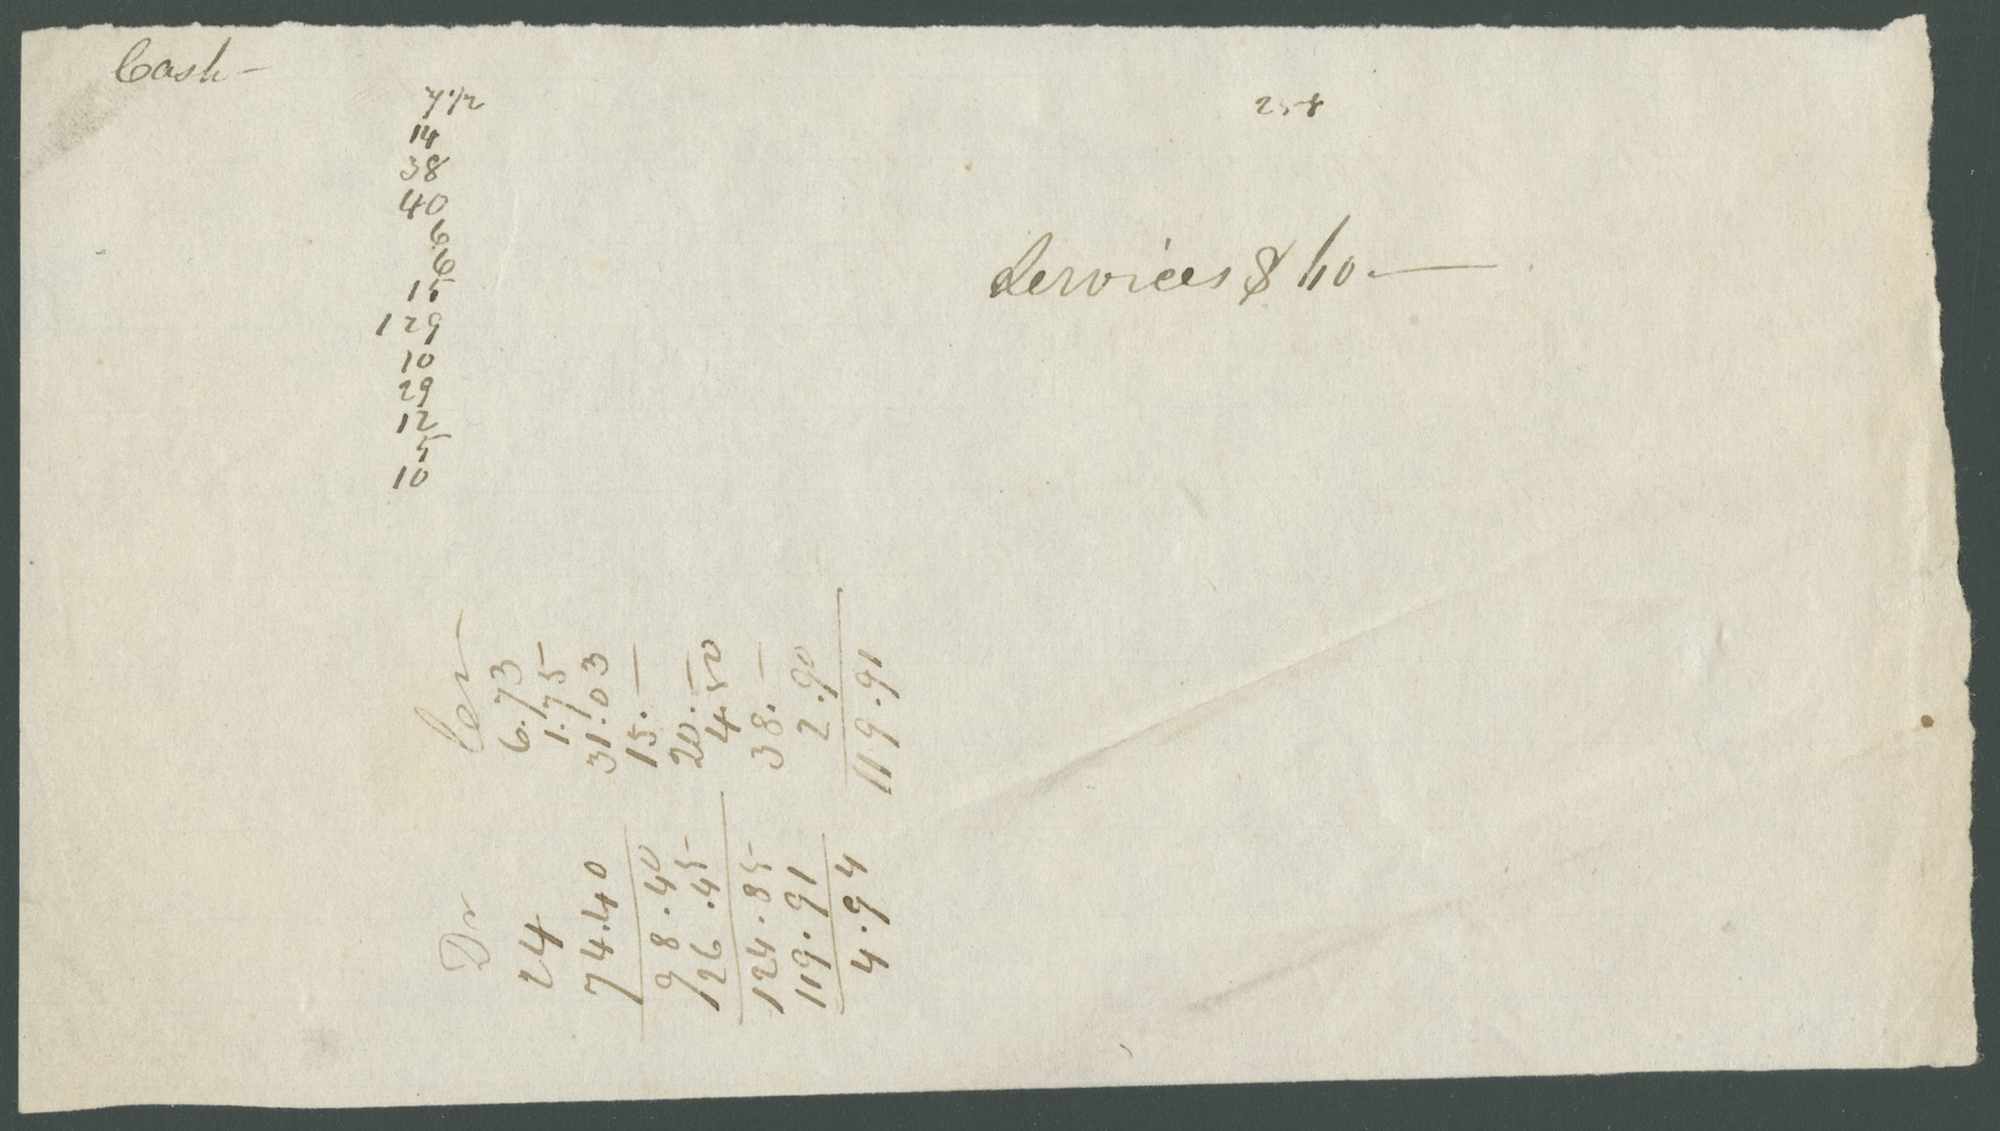 Cash —
7 1/2
14
38
40
6
6
15
129
10
29
12
5
10
254
Services $ 40 —
Dr
24
74.40
98.40
26.45
124.85
119.91
4.94
Cr
6.73
1.75
31.03
15. —
20. —
4.50
38. —
2.90
119.91